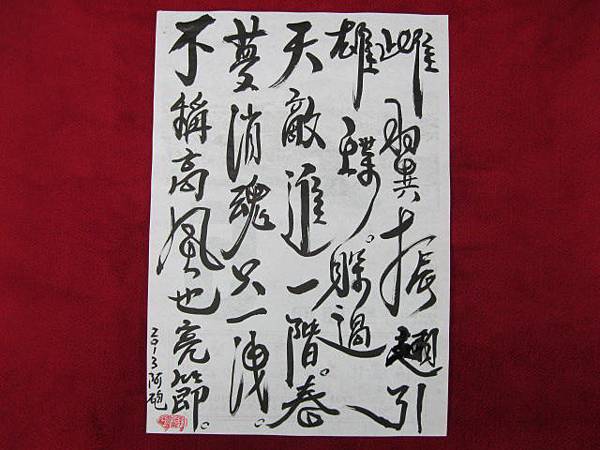 雌翼振翅引
雄蝶。躲過
天敵進一階。春
夢消魂只一洩。
不稱高風也亮節。
2013阿砲